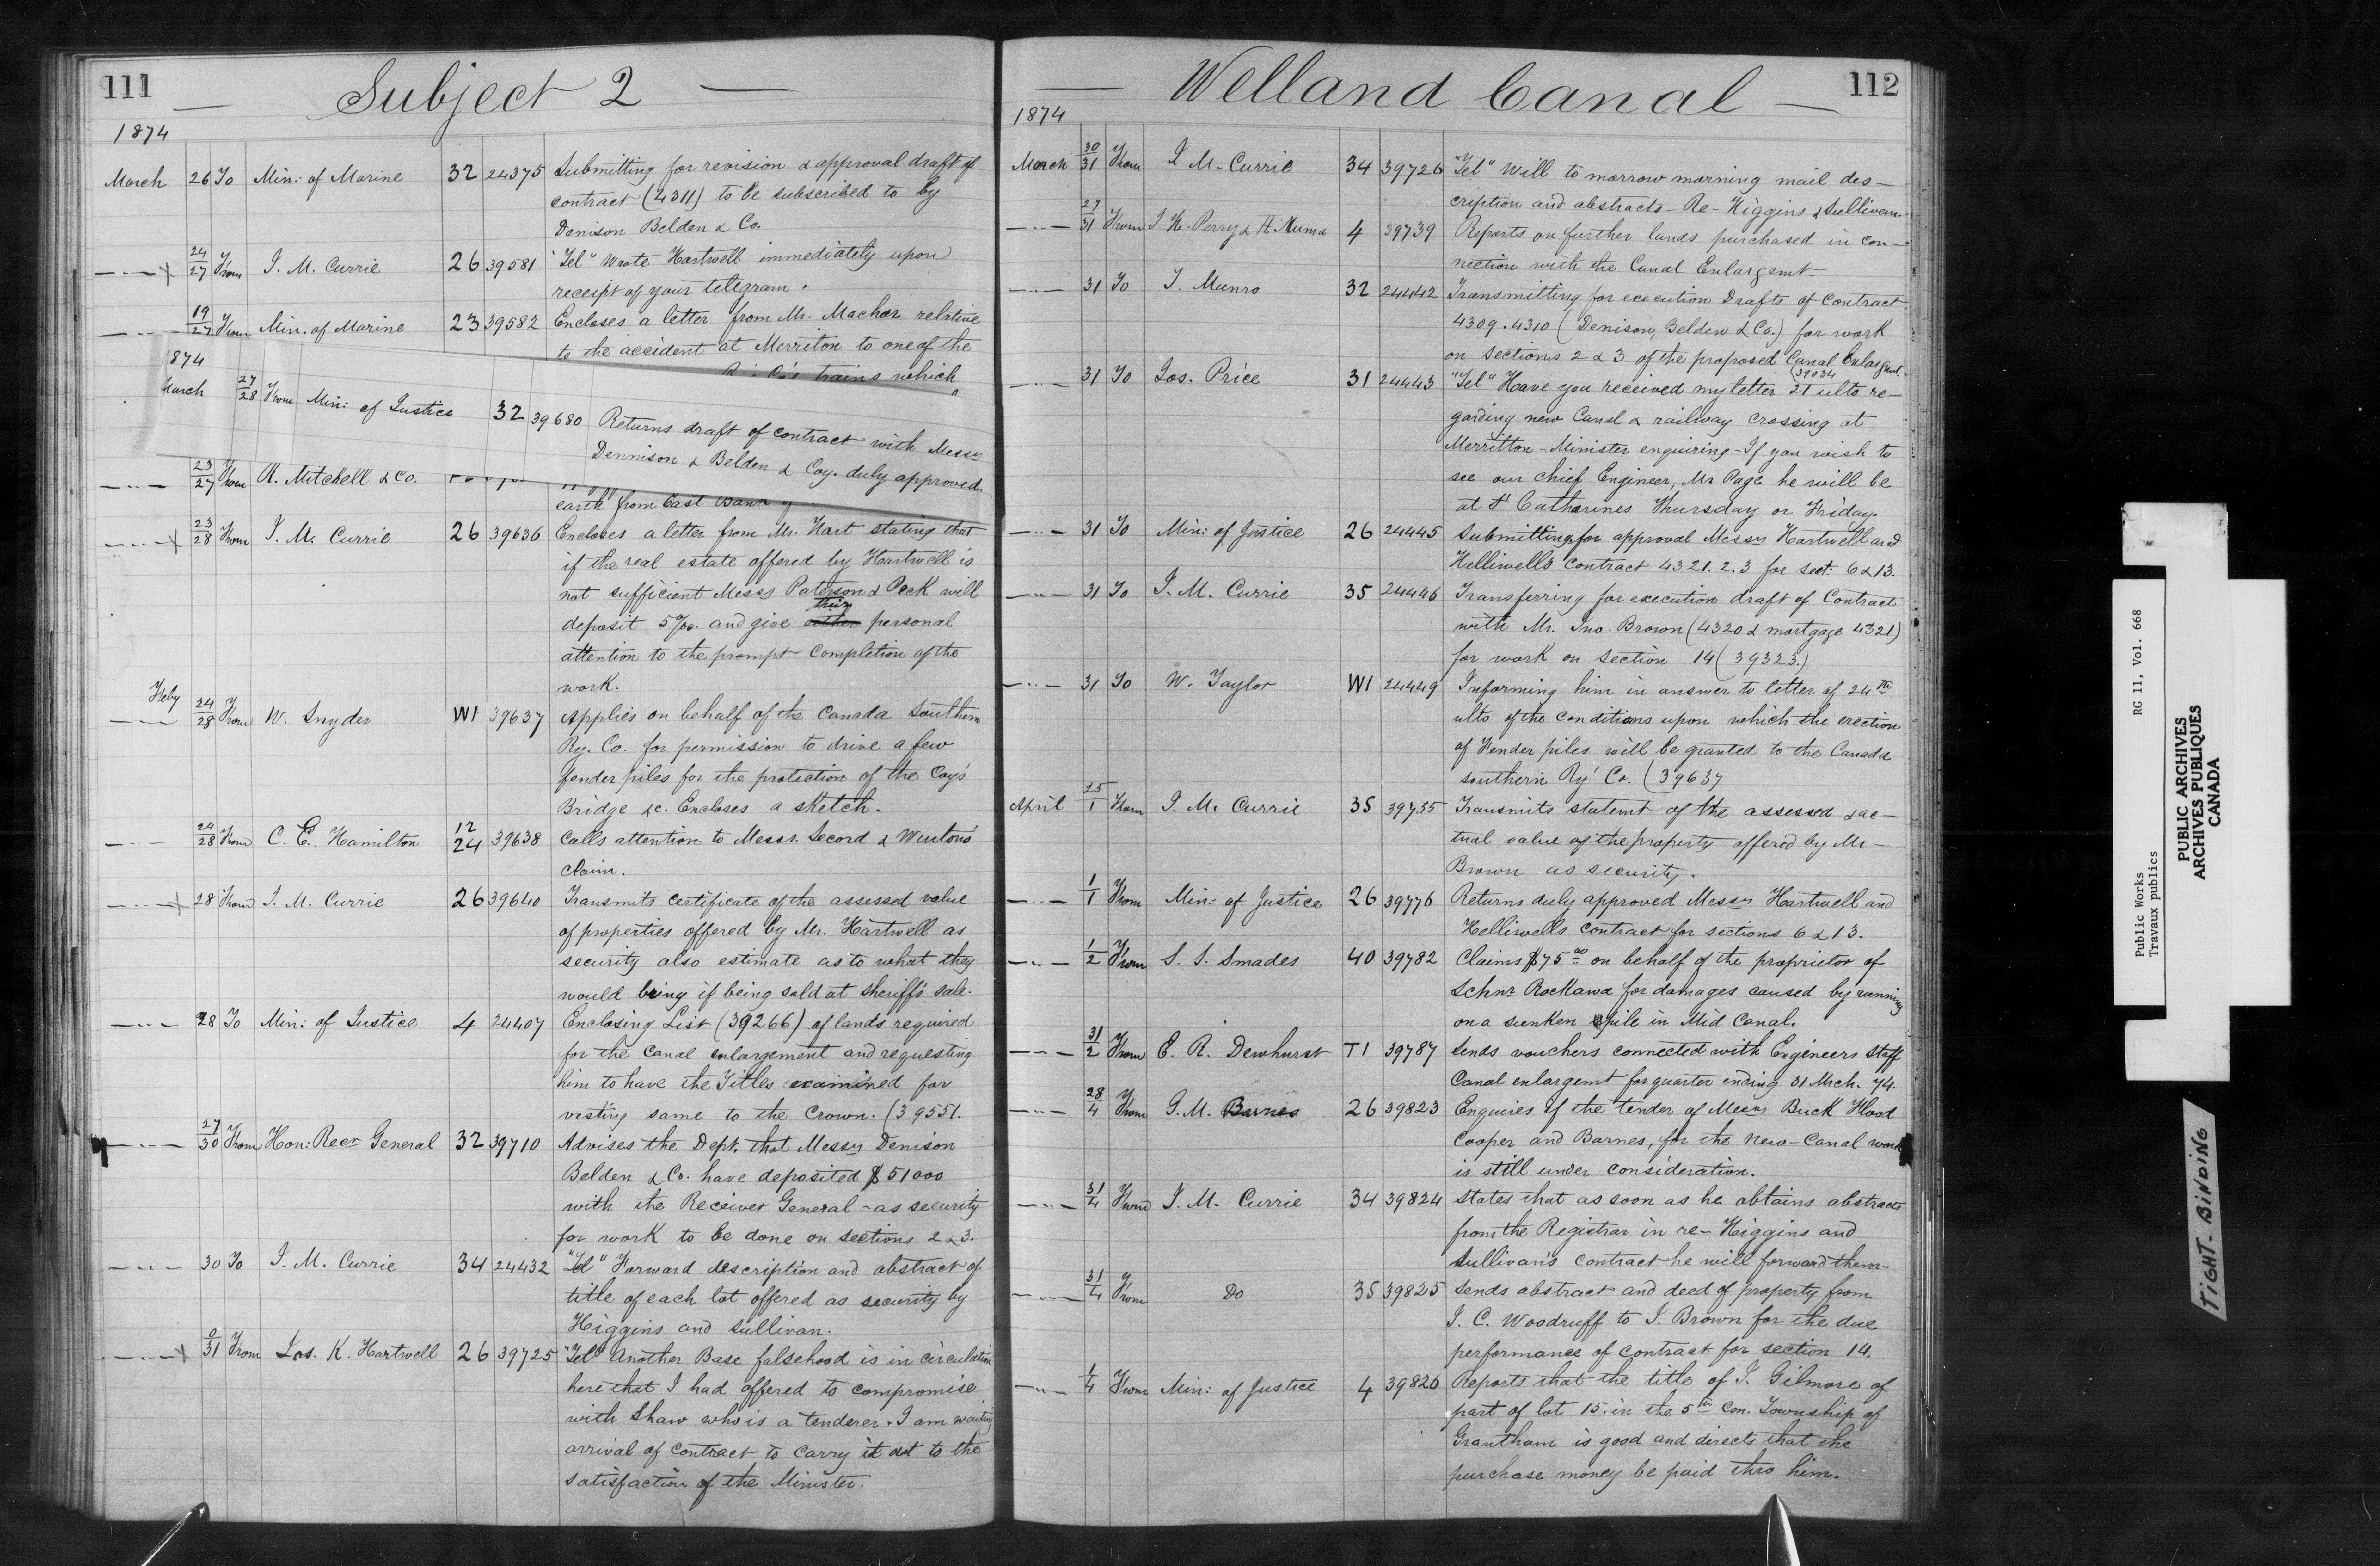 111
Subject 2
1874
March 26 To Min: of Marine 32 24375 Submitting for revision & approval draft of
contract (4311) to be subscribed to by
Denison Belden & Co.
24/27 From J. M. Currie 26 39581 "Tel" Wrote Hartwell immediately upon
receipt of your telegram.
19/27 From Min. of Marine 23 39582 Encloses a letter from Mr. Machar relative
to the accident at Merriton to one of the
trains which
1874
March 27/28 From Min: of Justice 32 39680 Returns draft of contract with Messrs
Dennison & Belden & Coy. duly approved.
23/27 From R. Mitchell & Co.
earth from East Bank
23/28 From J. M. Currie 26 39636 Encloses a letter from Mr. Hart stating that
if the real estate offered by Hartwell is
not sufficient Messrs Paterson & Peck will
their
deposit 5%. and give personal
attention to the prompt completion of the
work.
Feby 24/28 From W. Snyder W1 39637 Applies on behalf of the Canada Southern
Ry. Co. for permission to drive a few
fender piles for the protection of the Coy's
Bridge &c. Encloses a sketch.
24/28 From C. E. Hamilton 12 24 39638 Calls attention to Messrs. Secord & Winton's
claim.
28 From J. M. Currie 26 39640 Transmits certificate of the assessed value
of properties offered by Mr. Hartwell as
security also estimate as to what they
would bring if being sold at sheriff's sale.
28 To Min: of Justice 4 24407 Enclosing List (39266) of lands required
for the Canal enlargement and requesting
him to have the Titles examined for
vesting same to the Crown. (39551.
27/30 From Hon: Recr General 32 39710 Advises the Dept. that Messrs Denison
Belden & Co. have deposited $51000
with the Receiver General - as security
for work to be done on sections 2 & 3.
30 To J. M. Currie 34 24432 "Tel" Forward description and abstract of
title of each lot offered as security by
Higgins and Sullivan.
0/31 From Jas. K. Hartwell 26 39725 "Tel" Another Base falsehood is in circulation
here that I had offered to compromise
with Shaw who is a tenderer. I am waiting
arrival of contract to carry it out to the
satisfaction of the Minister.
Welland Canal
112
1874
March 30/31 From J. M. Currie 34 39726 "Tel" Will to morrow morning mail des-
cription and abstracts - Re - Higgins & Sullivan.
27/31 From J H. Perry & H. Numa 4 39739 Reports on further lands purchased in con-
nection with the Canal Enlargemt.
31 To T. Munro 32 24442 Transmitting for execution Drafts of Contract
4309. 4310 (Denison, Belden & Co.) for work
on sections 2 & 3 of the proposed Canal Enlargmt.
(39034
31 To Jos. Price 31 24443 "Tel" Have you received my letter 21 ulto re-
garding new Canal & railway crossing at
Merritton - Minister enquiring - If you wish to
see our Chief Engineer, Mr Page he will be
at St Catharines Thursday or Friday.
31 To Min: of Justice 26 24445 Submitting for approval Messrs Hartwell and
Helliwell's contract 4321. 2. 3 for sect. 6 & 13.
31 To J. M. Currie 35 24446 Transferring for execution draft of Contract
with Mr. Jno. Brown (4320 & mortgage 4321)
for work on section 14 (39323.)
31 To W. Taylor W1 24449 Informing him in answer to letter of 24th
ulto of the conditions upon which the erection
of Fender piles will be granted to the Canada
southern Ry' Co. (39637
April 25/1 From J. M. Currie 35 39755 Transmits statemt of the assessed & ac-
tual value of the property offered by Mr -
Brown as security.
1/1 From Min: of Justice 26 39776 Returns duly approved Messrs Hartwell and
Helliwells contract for sections 6 & 13.
1/2 From S. S. Smades 40 39782 Claims $75.00 on behalf of the proprietor of
Schnr Rockawa for damages caused by running
on a sunken pile in Mid Canal.
31/2 From E. R. Dewhurst T1 39787 Sends vouchers connected with Engineers Staff
Canal enlargemt for quarter ending 31 Mrch. 74.
28/4 From G. M. Barnes 26 39823 Enquires if the tender of Messrs Buck Flood
Cooper and Barnes, for the New-Canal work
is still under consideration.
31/4 From J. M. Currie 34 39824 States that as soon as he obtains abstracts
from the Registrar in re - Higgins and
Sullivan's contract he will forward them -
31/4 From Do 35 39825 Sends abstract and deed of property from
J. C. Woodruff to J. Brown for the due
performance of contract for section 14.
1/4 From Min: of Justice 4 39826 Reports that the title of J. Gilmore of
part of lot 15. in the 5th Con. Township of
Grantham is good and directs that the
purchase money be paid thro him.
Public Works RG 11, Vol. 668
Travaux publics
PUBLIC ARCHIVES
ARCHIVES PUBLIQUES
CANADA
TIGHT BINDING